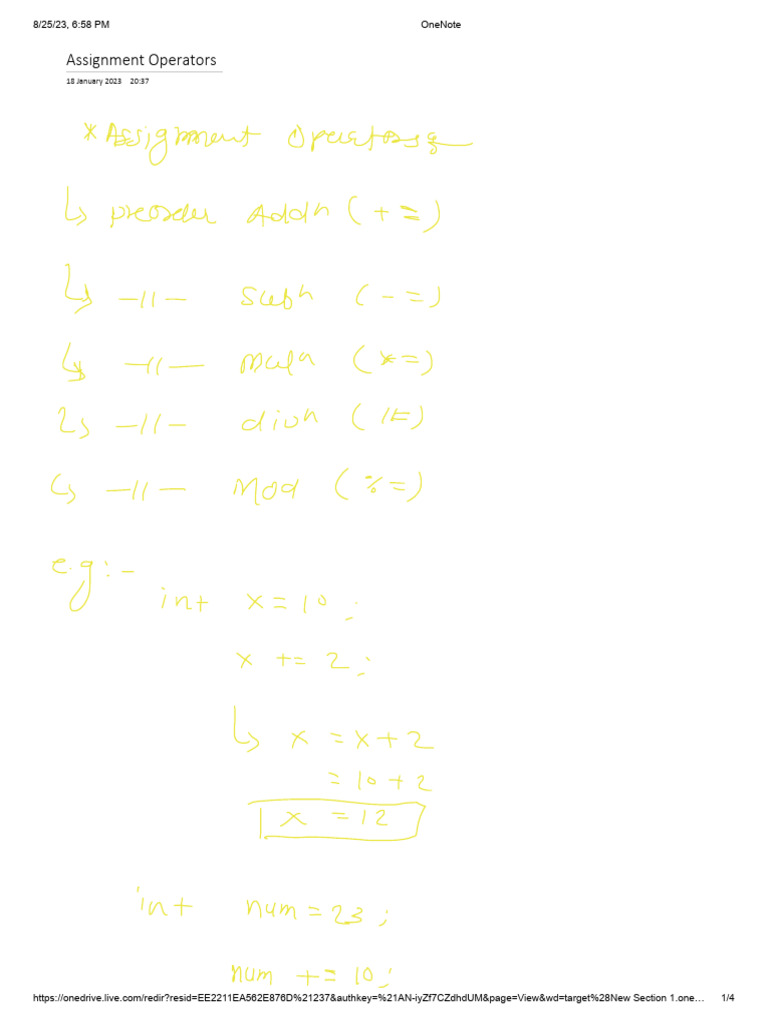 8/25/23, 6:58 PM OneNote
Assignment Operators
18 January 2023 20:37
* Assignment Operators
↳ preorder Addn (+=)
↳ -11- Subn (-=)
↳ -11- Muln (*=)
↳ -11- divn (/=)
↳ -11- Mod (%=)
e.g:-
int x = 10;
x += 2;
↳ x = x+2
= 10+2
x = 12
int num = 23;
num += 10;
https://onedrive.live.com/redir?resid=EE2211EA562E876D%21237&authkey=%21AN-iyZf7CZdhdUM&page=View&wd=target%28New Section 1.one… 1/4